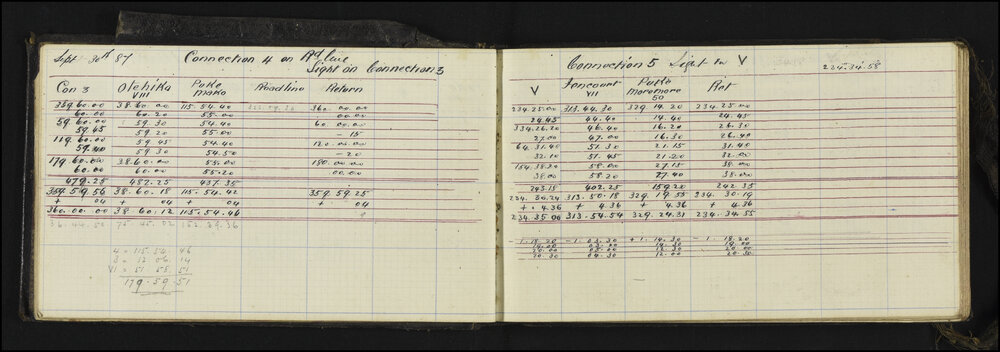 Sept 30th 87 Connection 4 on Ad line
Sight on Connection 3
Con 3 Otehika VIII Puke mako Roadline Return
359 60.00 38.60.00 115.54.40 360.00.00
60.00 60.20 55.00 00.00
59 60.00 59.30 54.40 60.00.00
59.45 59.20 55.00 - 15
119 60.00 59.45 54.40 120.00.00
59.40 59.30 54.50 - 20
179 60.00 38.60.00 55.00 180.00.00
60.00 60.00 55.20 00.00
479.25 482.25 437.35
359.59.56 38.60.18 115.54.42 359.59.25
+ 04 + 04 + 04 + 04
360.00.00 38.60.12 115.54.46
36.44.50 75.45.02 152.39.36
4 = 115.54.46
3 = 12.06.14
VI = 51.55.51
179.59.51
Connection 5 Sight on V 234.34.58
V Foncourt VII Puke maromore 50 Ret
234.25.00 313.44.30 329.14.20 234.25.00
24.45 44.40 14.40 24.45
334.26.20 46.40 16.20 26.30
27.00 47.00 16.30 26.40
64.31.40 51.30 21.15 31.40
32.10 51.45 21.20 32.00
154.38.20 58.00 27.15 38.00
38.00 58.20 27.40 38.00
243.15 402.25 159.20 242.35
234.30.24 313.50.18 329.19.55 234.30.19
+ 4.36 + 4.36 + 4.36 + 4.36
234.35.00 313.54.54 329.24.31 234.34.55
-1.18.20 -1.03.30 +1.14.30 -1.18.20
19.00 03.00 14.30 19.00
20.00 05.00 12.30 20.00
20.30 04.30 12.00 20.30